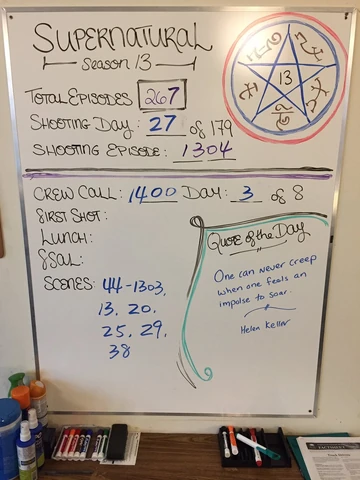 SUPERNATURAL
SEASON 13
13
TOTAL EPISODES 267
SHOOTING DAY: 27 of 179
SHOOTING EPISODE: 1304
CREW CALL: 1400 DAY: 3 of 8
FIRST SHOT:
LUNCH:
SCENES: 44-1303,
13, 20,
25, 29,
38
QUOTE of the DAY
One can never creep
when one feels an
impulse to soar.
Helen Keller